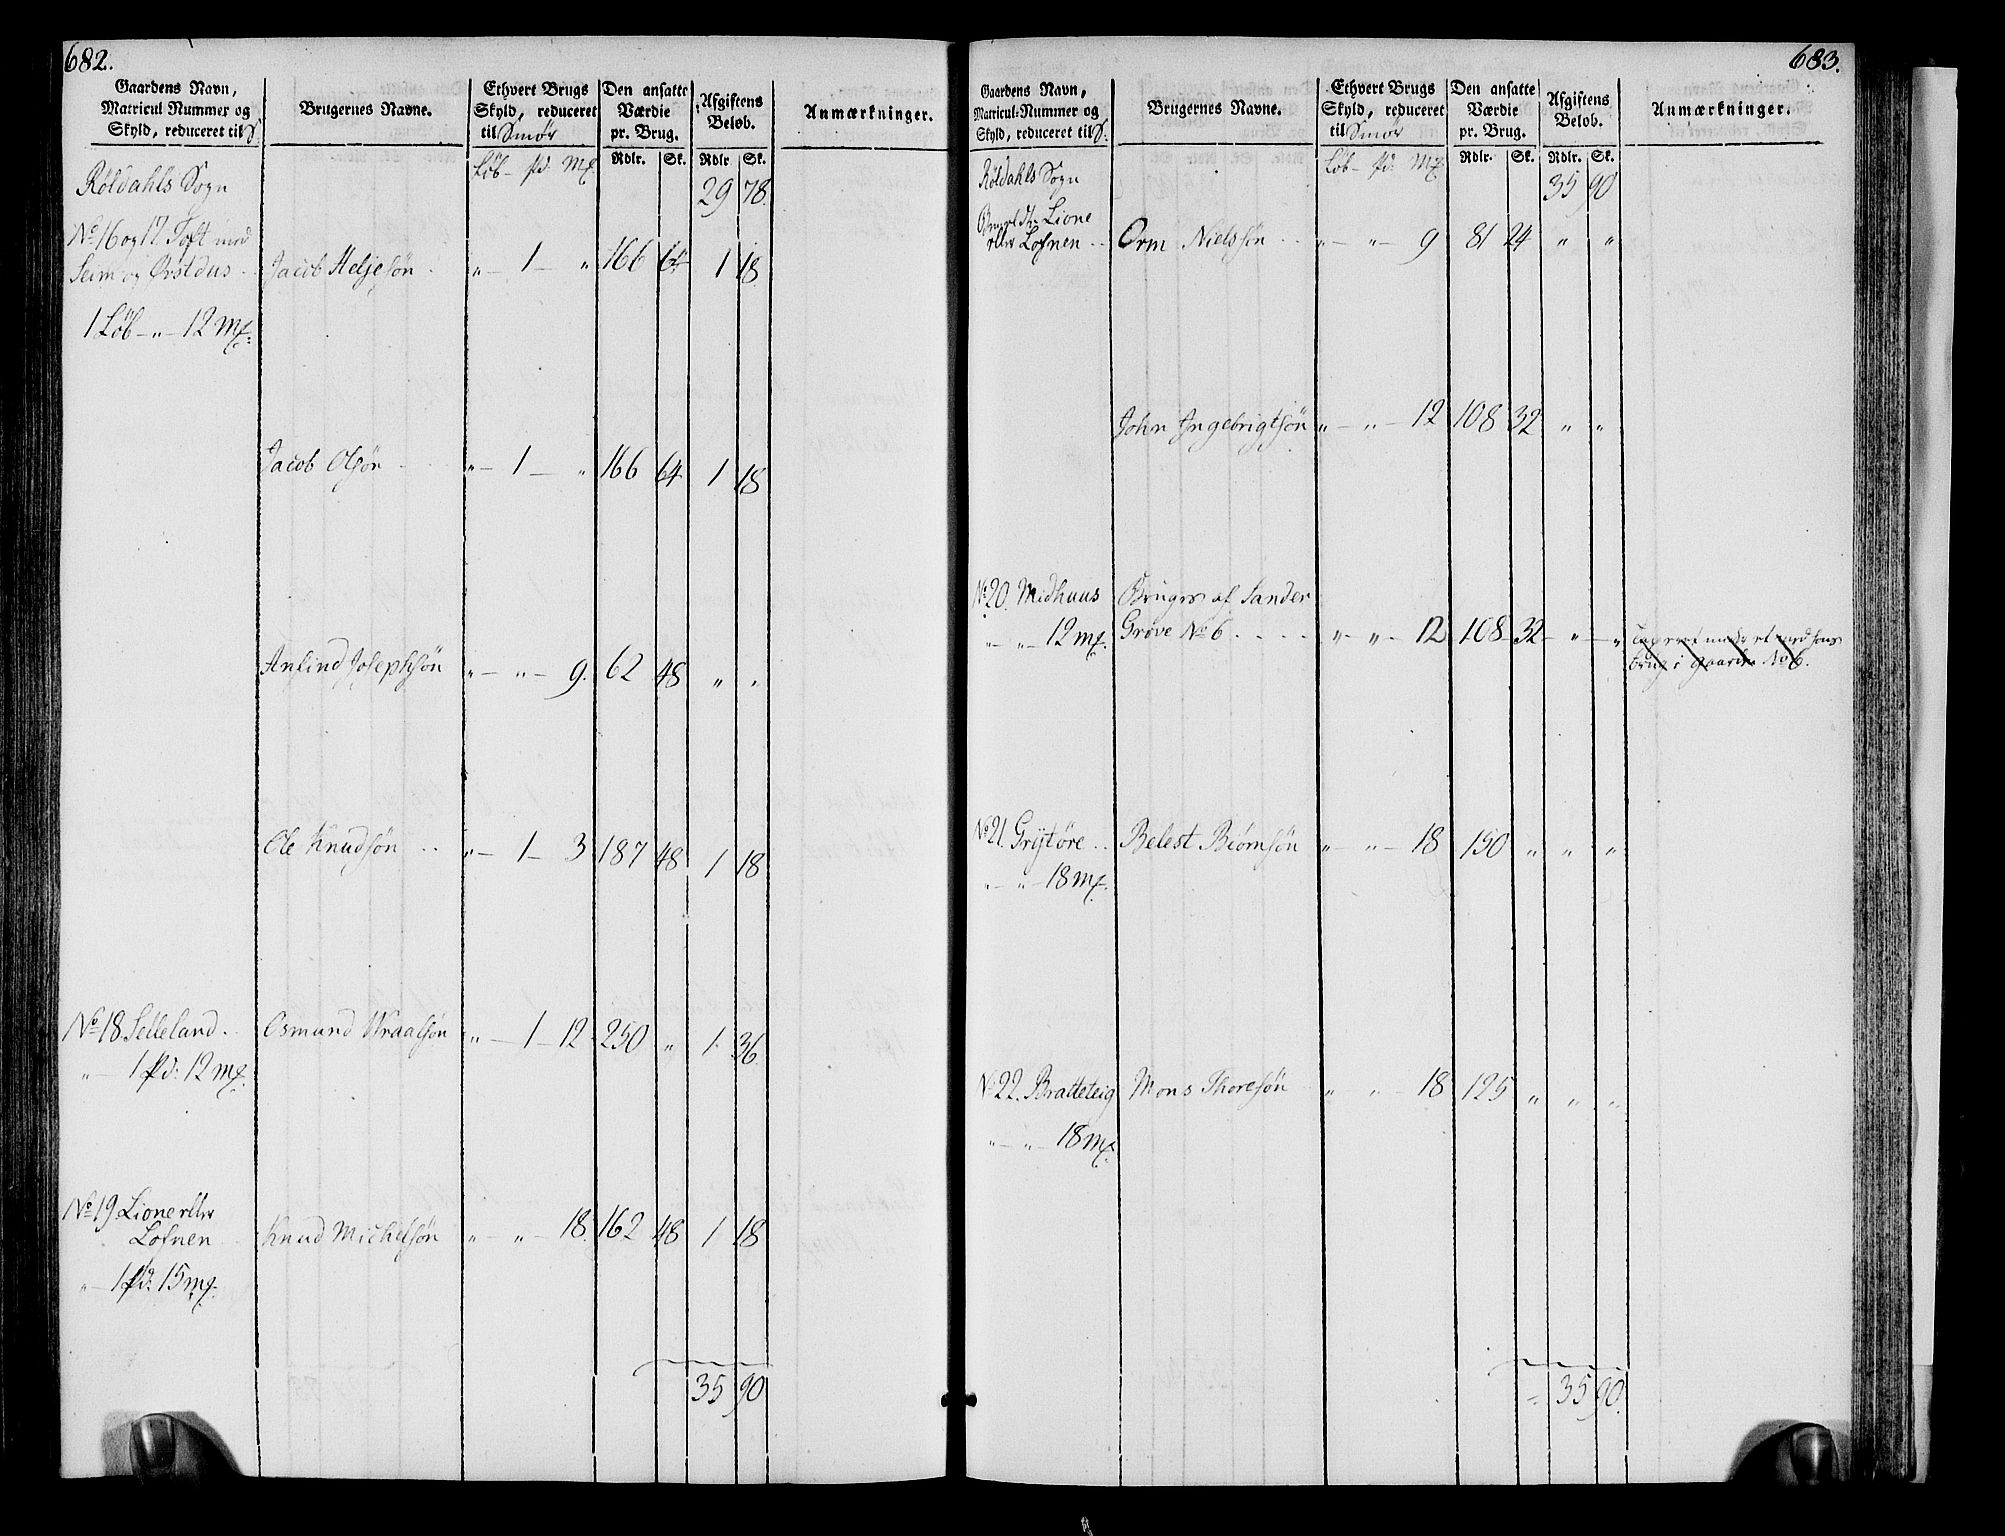 682.
Gaardens Navn, Matricul Nummer og Skyld, reduceret til S. | Brugernes Navne. | Ethvert Brugs Skyld, reduceret til Smør | Den ansatte Værdie pr. Brug. | Afgiftens Beløb. | Anmærkninger.
Løb – Pd: Mk. | Rdlr. Sk. | Rdlr Sk.
Røldahls Sogn | 29 78.
No 16 og 17. Toft med
Seim og Østdus | Jacob Heljesøn | „ – 1 – „ | 166 64 | 1 18.
1 Løb – „ – 12 Mk.
Jacob Olsøn | „ – 1 – „ | 166 64 | 1 18
Anfind Josephsøn | „ – „ – 9. | 62 48 | „ „
Ole Knudsøn | „ – 1 – 3 | 187 48 | 1 18
No 18. Selleland | Osmund Wraalsøn | „ – 1 – 12 | 250 „ | 1. 36
„ – 1 Pd: 12 Mk.
No 19 Lione eller
Lofnen | Knud Michelsøn | „ – „ – 18. | 162 48 | 1 18
„ – 1 Pd: 15 Mk.
35 90
683.
Gaardens Navn, Matricul-Nummer og Skyld, reduceret til S. | Brugernes Navne. | Ethvert Brugs Skyld, reduceret til Smør | Den ansatte Værdie pr. Brug. | Afgiftens Beløb. | Anmærkninger.
Løb – Pd: Mk | Rdlr. Sk. | Rdlr. Sk.
Røldahls Sogn | 35 90
Lione
eller Lofnen | Orm Nielssøn | „ – „ – 9 | 81 24 | „ „
John Ingebrigtsøn | „ – „ – 12 | 108 32 | „ „
No 20. Midhuus | Bruges af Sander
„ – „ – 12 Mk. | Grove No 6. | „ – „ – 12 | 108 32 | „ – „
brug i Gaarden No 6.
No 21. Grytøre | Belest Biørnsøn | „ – „ – 18 | 150 „ | „ „
„ – „ – 18 Mk.
No 22. Bratteteig | Mons Thoresøn | „ „ – 18 | 125 „ | „ „
„ – „ – 18 Mk.
35 90.